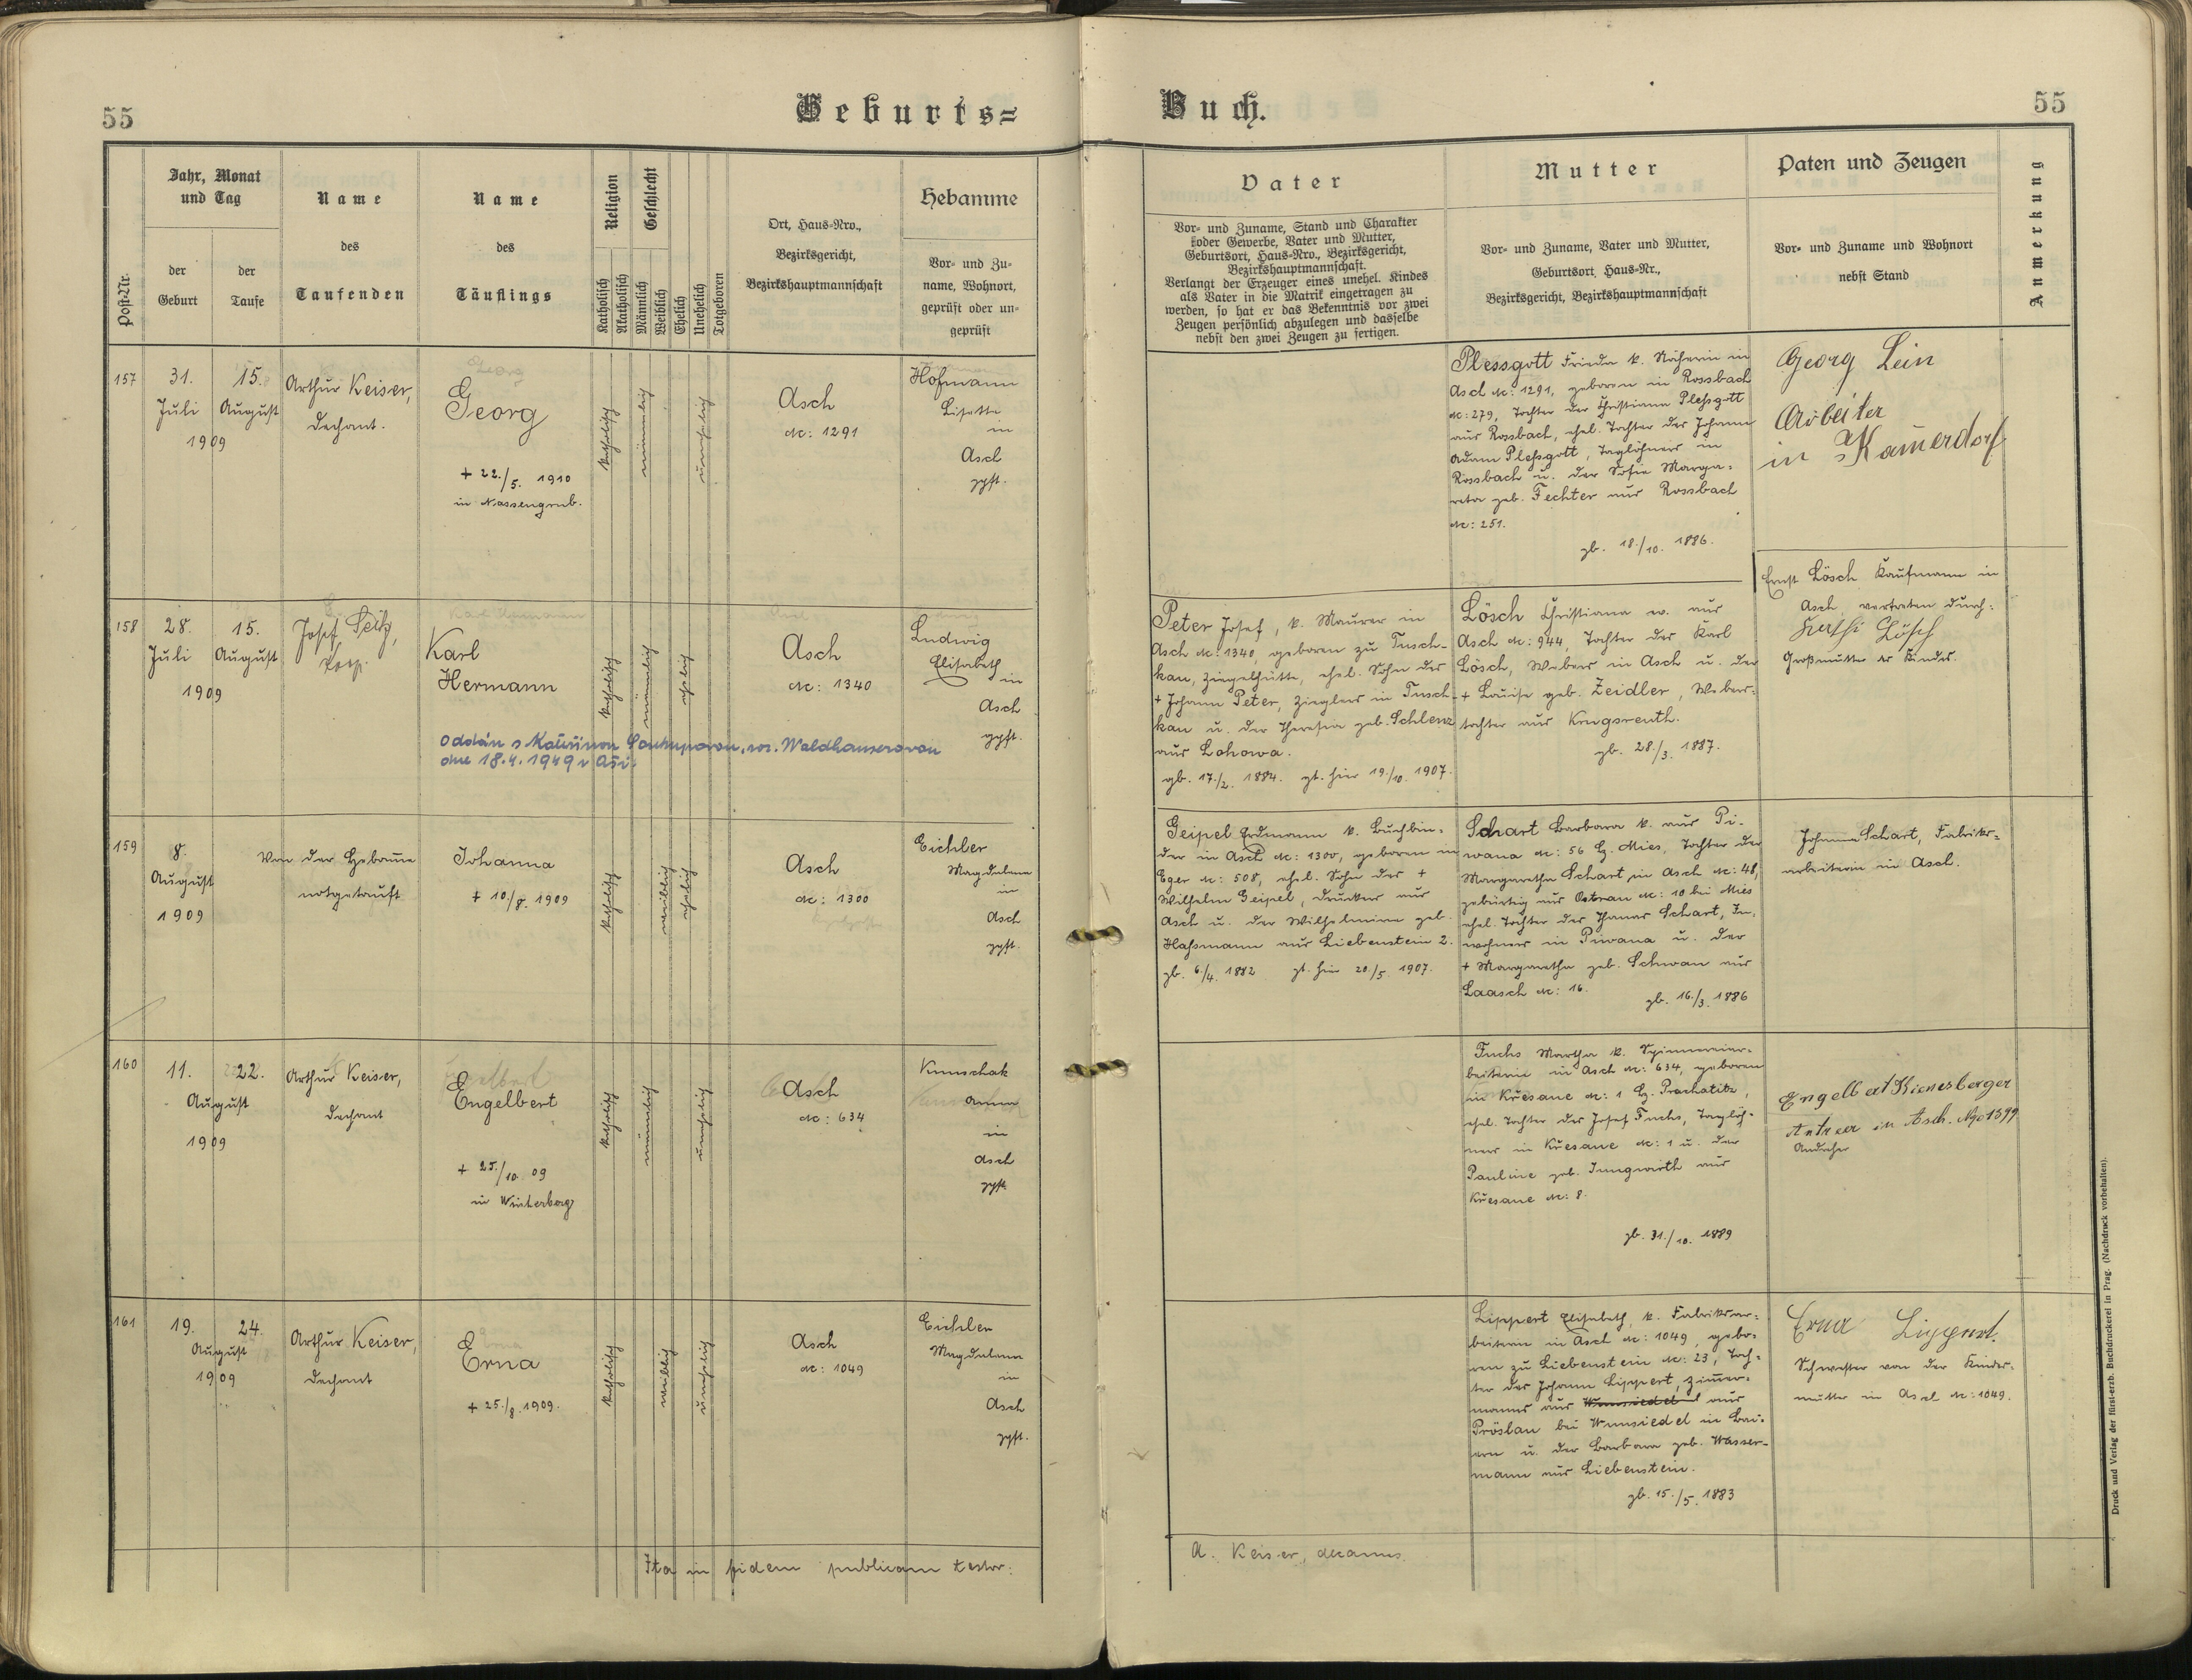 55
Geburts=
Buch.
55
Post-Nr.
Jahr, Monat
und Tag
der
Geburt
der
Taufe
Name
des
Taufenden
Name
des
Täuflings
Religion
Katholisch
Akatholisch
Geschlecht
Männlich
Weiblich
Ehelich
Unehelich
Totgeboren
Ort, Haus=Nro.,
Bezirksgericht,
Bezirkshauptmannschaft
Hebamme
Vor= und Zu=
name, Wohnort,
geprüft oder un=
geprüft
Vater
Vor= und Zuname, Stand und Charakter
oder Gewerbe, Vater und Mutter,
Geburtsort, Haus=Nro., Bezirksgericht,
Bezirkshauptmannschaft.
Verlangt der Erzeuger eines unehel. Kindes
als Vater in die Matrik eingetragen zu
werden, so hat er das Bekenntnis vor zwei
Zeugen persönlich abzulegen und dasselbe
nebst den zwei Zeugen zu fertigen.
Mutter
Vor= und Zuname, Vater und Mutter,
Geburtsort, Haus=Nr.,
Bezirksgericht, Bezirkshauptmannschaft
Paten und Zeugen
Vor= und Zuname und Wohnort
nebst Stand
Anmerkung
157
31.
Juli
15.
August
1909
Arthur Keiser,
Dechant.
Georg
+ 22./5. 1910
in Nassengrub.
katholisch
männlich
unehelich
Asch
Nc: 1291
Hofmann
Lisette
in
Asch
gpft.
Plessgott Frieda k. Näherin in
Asch Nc: 1291, geboren in Rossbach
Nc: 279, Tochter der Christiana Plessgott
aus Rossbach, ehel. Tochter des Johann
Adam Plessgott, Taglöhners in
Rossbach u. der Sofie Marga=
reta geb. Fechter aus Rossbach
Nc: 251.
gb. 18./10. 1886.
Georg Lein
Arbeiter
in
158
28.
Juli
15.
August
1909
Josef Seitz,
Koop.
Karl
Hermann
katholisch
männlich
ehelich
Asch
Nc: 1340
Ludwig
Elisabeth
in
Asch
gpft.
Oddán s Kateřinou Soukupovou, roz. Waldhauserovou
dne 18.4.1949 v Aši.
Peter Josef, k. Maurer in
Asch Nc: 1340, geboren zu Tusch=
kau, Ziegelhütte, ehel. Sohn des
+ Johann Peter, Zieglers in Tusch=
kau u. der Theresia geb. Schlenz
aus Lohowa.
gb. 17./2. 1884. gt. hier 19./10. 1907.
Lösch Christiana ev. aus
Asch Nc: 944, Tochter des Karl
Lösch, Webers in Asch u. der
+ Louise geb. Zeidler, Webers=
tochter aus Krugsreuth.
gb. 28./3. 1887.
Ernst Lösch Kaufmann in
Asch, vertreten durch:
Lösch
Großmutter des Kindes.
159
8.
August
1909
Von der Hebamme
notgetauft
Johanna
+ 10./8. 1909
katholisch
weiblich
ehelich
Asch
Nc: 1300
Eichler
Magdalena
in
Asch
gpft.
Geipel Erdmann k. Buchbin=
der in Asch Nc: 1300, geboren in
Eger Nc: 508, ehel. Sohn des +
Wilhelm Geipel, Druckers aus
Asch u. der Wilhelmine geb.
Hassmann aus Liebenstein 2.
gb. 6./4. 1882 gt. hier 20./5. 1907.
Schart Barbara k. aus Pi=
wana Nc: 56 Bz. Mies, Tochter der
Margaretha Schart in Asch Nc: 48,
gebürtig aus Ostrau Nc: 10 bei Mies
ehel. Tochter des Thomas Schart, In=
wohners in Piwana u. der
+ Margaretha geb. Schwan aus
Laasch Nc: 16.
gb. 16./3. 1886
Johanna Schart, Fabriks=
arbeiterin in Asch.
160
11.
22.
August
1909
Arthur Keiser,
Dechant
Engelbert
+ 25./10. 09
in Winterberg
katholisch
männlich
unehelich
Asch
Nc: 634
Kunschak
Anna
in
Asch
gpft.
Fuchs Martha k. Spinnereiar=
beiterin in Asch Nc: 634, geboren
in Křesane Nc: 1 Bz. Prachatitz,
ehel. Tochter des Josef Fuchs, Taglöh=
ners in Křesane Nc: 1 u. der
Pauline geb. Jungwirth aus
Křesane Nc: 8.
gb. 31./10. 1889
Engelbert Kienesberger
in Asch. No 1599
Andreher
161
19.
24.
August
1909
Arthur Keiser,
Dechant
Erna
+ 25./8. 1909.
katholisch
weiblich
unehelich
Asch
Nc: 1049
Eichler
Magdalena
in
Asch
gpft.
Lippert Elisabeth, k. Fabriksar=
beiterin in Asch Nc: 1049, gebo=
ren zu Liebenstein Nc: 23, Toch=
ter des Johann Lippert, Zimmer=
manns aus Wunsiedel aus
Pröslau bei Wunsiedel in Bai=
ern u. der Barbara geb. Wasser=
mann aus Liebenstein.
gb. 15./5. 1883
Erna Lippert.
Schwester von der Kindes=
mutter in Asch Nc: 1049.
Ita in fidem publicam testor:
A. Keiser, decanus.
Druck und Verlag der fürst-erzb. Buchdruckerei in Prag. (Nachdruck vorbehalten).